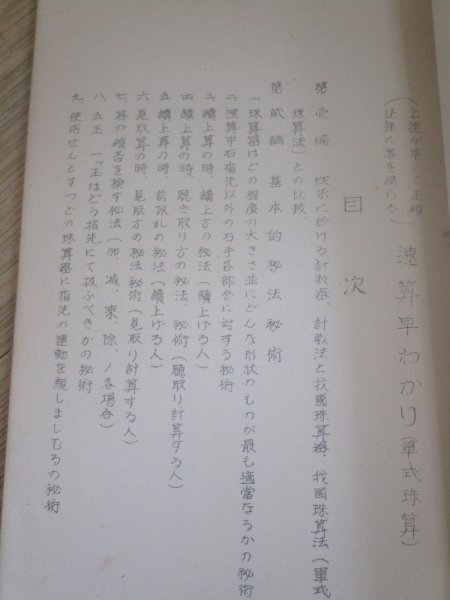 (上達が早くて正確
迅速に答を得らる)
速算早わかり(軍式珠算)
目次
第壱編 欧米に於ける計数器、計数法と我國珠算器、我國珠算法(軍式
珠算法)との比較
第貳編 基本的秘法秘術
一、珠算器はどの程度の大きさ並にどんな形状のものが最も適當なるかの秘術
二、運算中右指先以外の右手各部分に対する秘術
三、讀上算の時、讀上方の秘法(讀上げる人)
四、讀上算の時、聴き取り方の秘法、秘術(聴取り計算する人)
五、讀上算の時、前触れの秘法(讀上げる人)
六、見取算の時、見取方の秘法秘術(見取り計算する人)
七、答の確否を検す秘法(加、減、乗、除、ノ各場合)
八、五玉、一ッ玉はどう指先にて扱ふべきかの秘術
九、使用せんとするつどの珠算器に指先の運動を親しましむるの秘術